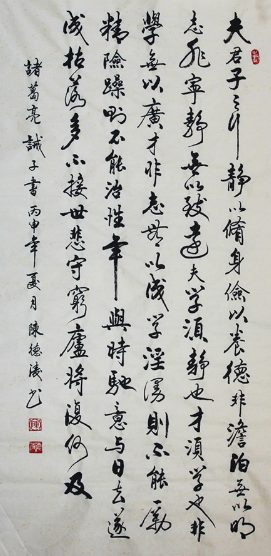 夫君子之行静以脩身儉以養德非澹泊無以明
志非寧靜無以致遠夫学須静也才須学也非
學無以廣才非志無以成学淫漫則不能勵
精險躁則不能治性年與時馳意与日去遂
成枯落多不接世悲守窮廬將復何及
諸葛亮誡子書丙申年夏月陳德书